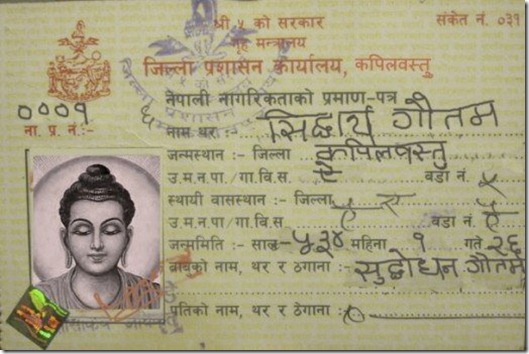 श्री ५ को सरकार
संकेत नं. ०३१
गृह मन्त्रालय
जिल्ला प्रशासन कार्यालय, कपिलवस्तु
०००१
ना. प्र. नं.:-
नेपाली नागरिकताको प्रमाण-पत्र
नाम थर :- सिद्धार्थ गौतम
जन्मस्थान :- जिल्ला कपिलवस्तु
उ.म.न.पा./गा.वि.स. ऐ वडा नं. ५
स्थायी वासस्थान :- जिल्ला ऐ
उ.म.न.पा./गा.वि.स ऐ वडा नं. ऐ
जन्ममिति :- साल - ५३४ महिना १ गते २६
बाबुको नाम, थर र ठेगाना :- सुद्धोधन गौतम
पतिको नाम, थर र ठेगाना :-